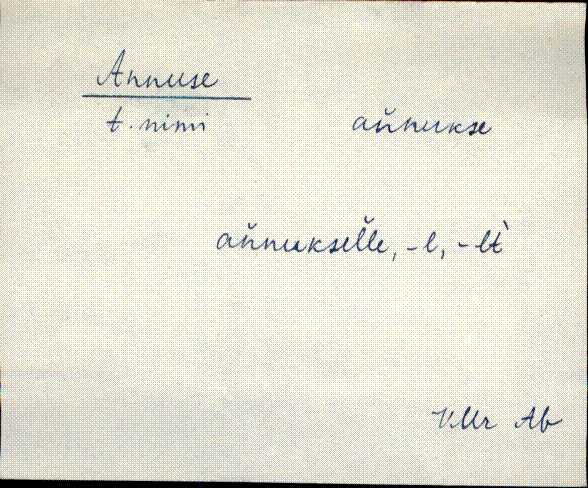 Annuse
t. nimi aňnukse
aňnukseľľe, -l, -lt̀
V.Mr Ab